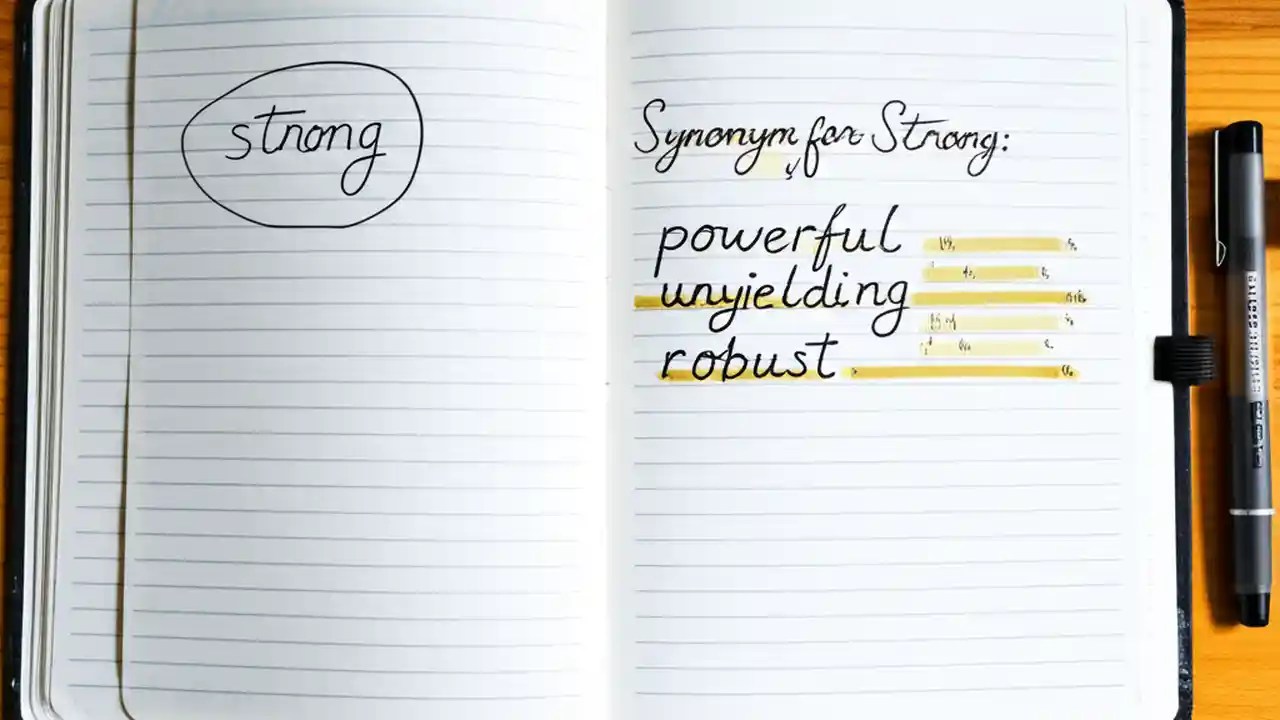 strong
Synonym for Strong:
powerful
unyielding
robust